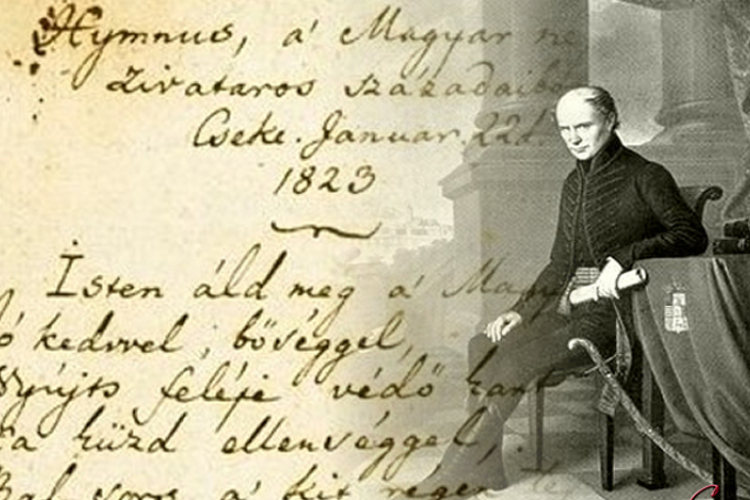 Hymnus, a' Magyar
Zivataros századaibó
Cseke. Januar. 22d.
1823
Isten áld meg a' Magy
ó kedvvel, bőséggel,
Nyújts feléje védő kart
a küzd ellenséggel,
Bal sors a' kit régen